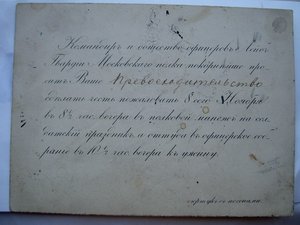 Командиръ и общество офицеровъ Лейбъ
Гвардiи Московскаго полка покорнѣйше про
ситъ Ваше Превосходительство
сдѣлать честь пожаловать 8 сего Ноября
въ 8½ час. вечера въ полковой манежъ на сол
датскiй праздникъ а оттуда въ офицерское соб
ранiе въ 10½ час. вечера къ ужину.
сюртукъ съ погонами.